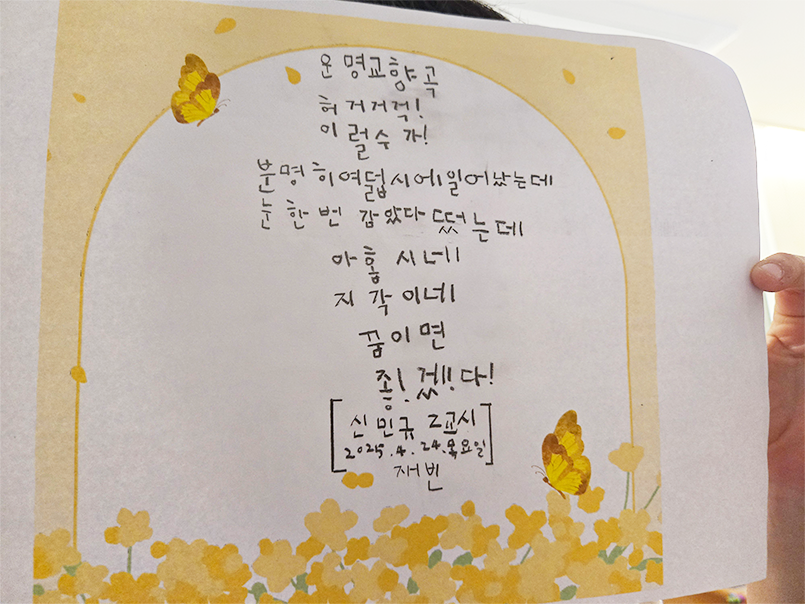 운명교향곡
허거거걱!
이럴수가!
분명히여덟시에일어났는데
눈한번감았다떴는데
아홉시네
지각이네
꿈이면
좋!겠!다!
[신민규 2교시
2025.4.24.목요일]
재빈